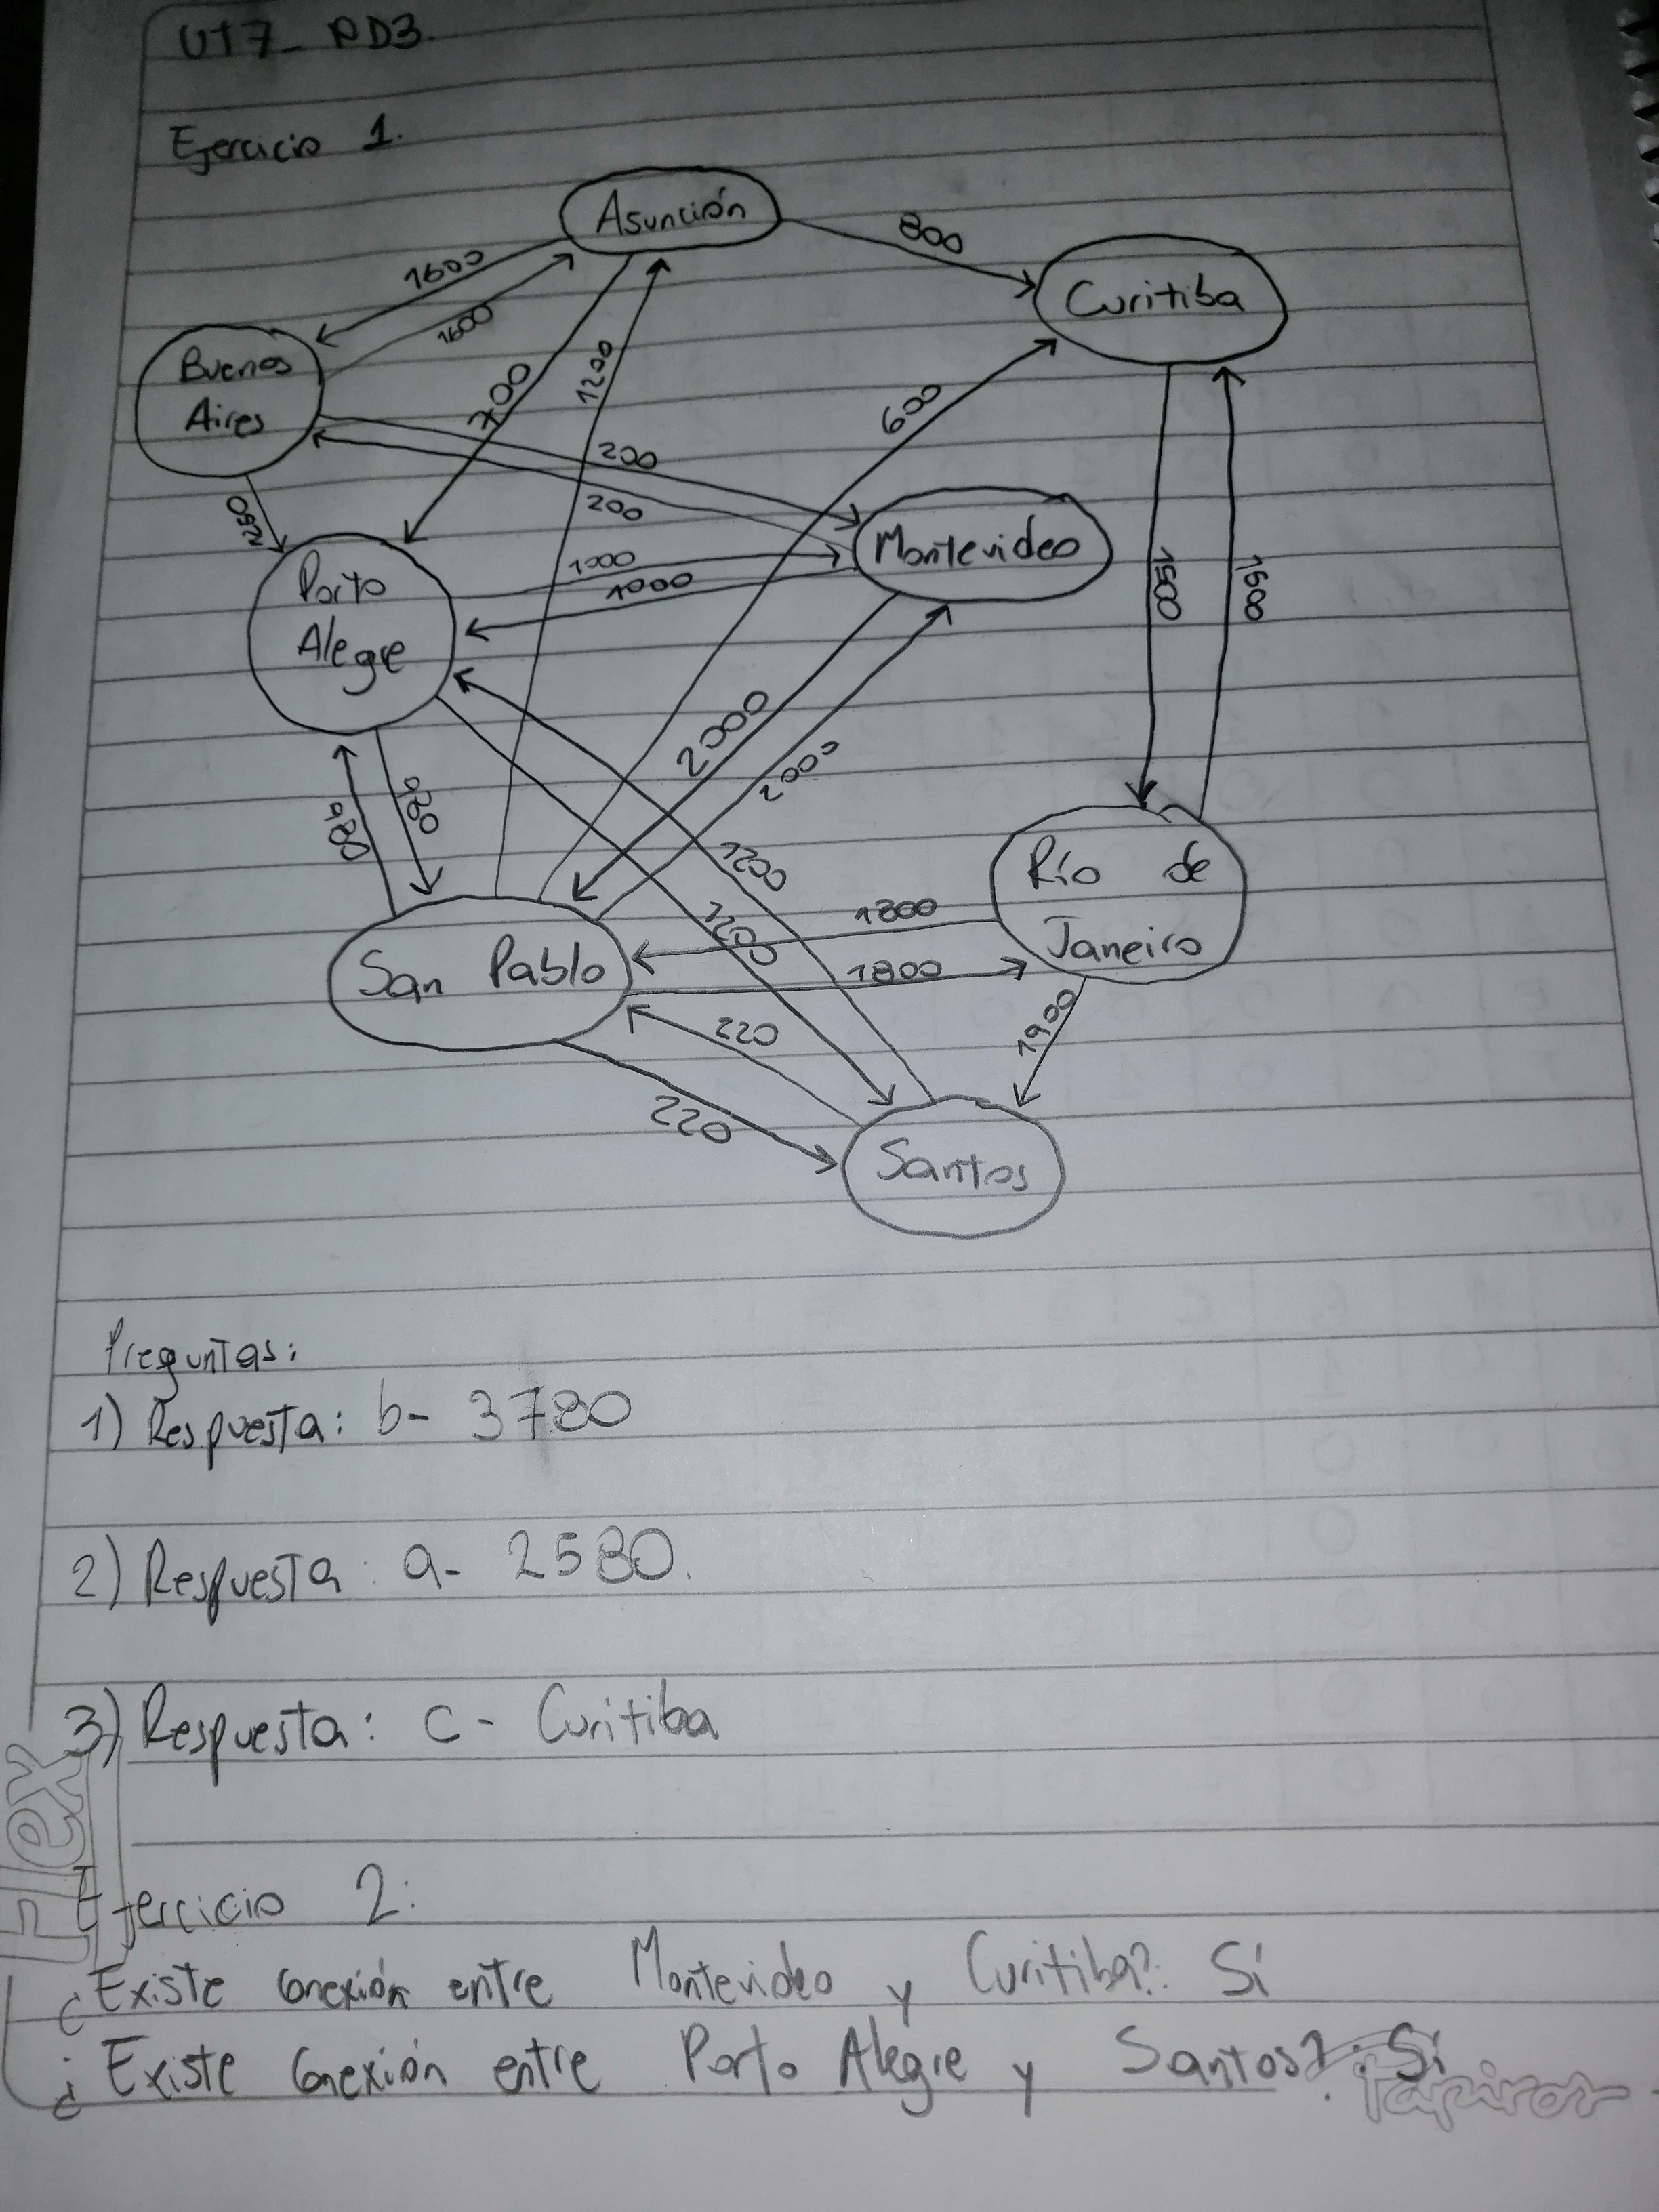 UT7_PD3.
Ejercicio 1.
Asunción
800
Curitiba
1600
1600
Buenos
Aires
700
1200
600
200
200
Montevideo
1000
1000
Porto
Alegre
1500
1500
2000
2000
980
1200
1200
Río de
Janeiro
1800
1800
San Pablo
220
1900
220
Santos
Preguntas:
1) Respuesta: b- 3780
2) Respuesta: a- 2580.
3) Respuesta: c- Curitiba
Ejercicio 2:
¿Existe conexión entre Montevideo y Curitiba?: Sí
¿Existe conexión entre Porto Alegre y Santos?: Sí
Flex
Papiros